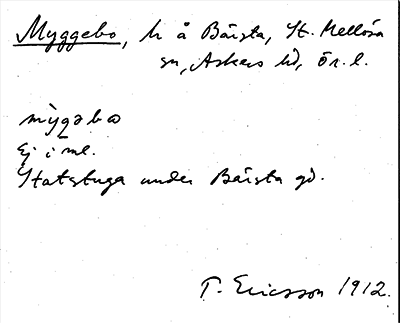 Myggebo, h å Bärsta, St. Mellösa
sn, Askers hd, Ör. l.
mỳgəbo
Ej i ml.
Statstuga under Bärsta gd.
T. Ericsson 1912.